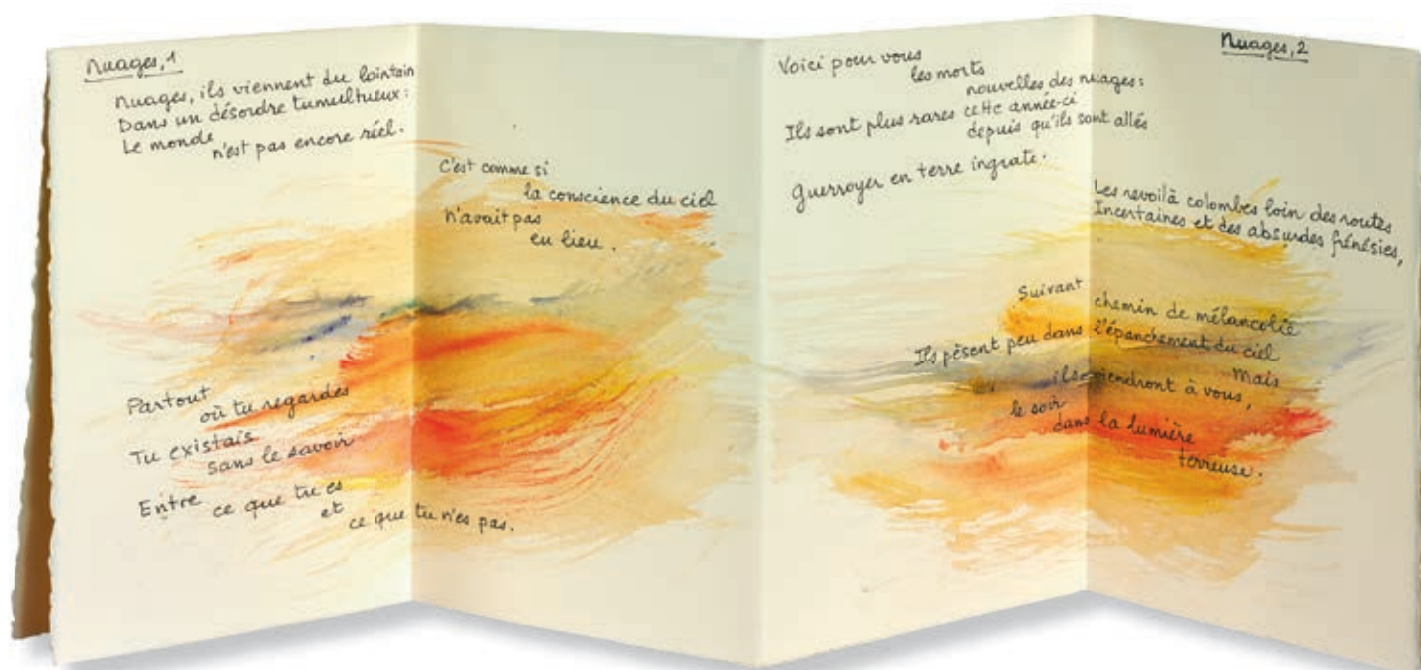 Nuages, 1
Nuages, ils viennent du lointain
Dans un désordre tumultueux :
Le monde
n'est pas encore réel.
C'est comme si
la conscience du ciel
n'avait pas
eu lieu.
Partout
où tu regardes
Tu existais
sans le savoir
Entre
ce que tu es
et
ce que tu n'es pas.
Nuages, 2
Voici pour vous
les morts
nouvelles des nuages :
Ils sont plus rares cette année-ci
depuis qu'ils sont allés
Guerroyer en terre ingrate.
Les revoilà colombes loin des routes
Incertaines et des absurdes frénésies,
Suivant
chemin de mélancolie
Ils pèsent peu dans l'épanchement du ciel
Mais
ils viendront à vous,
le soir
dans la lumière
terreuse.